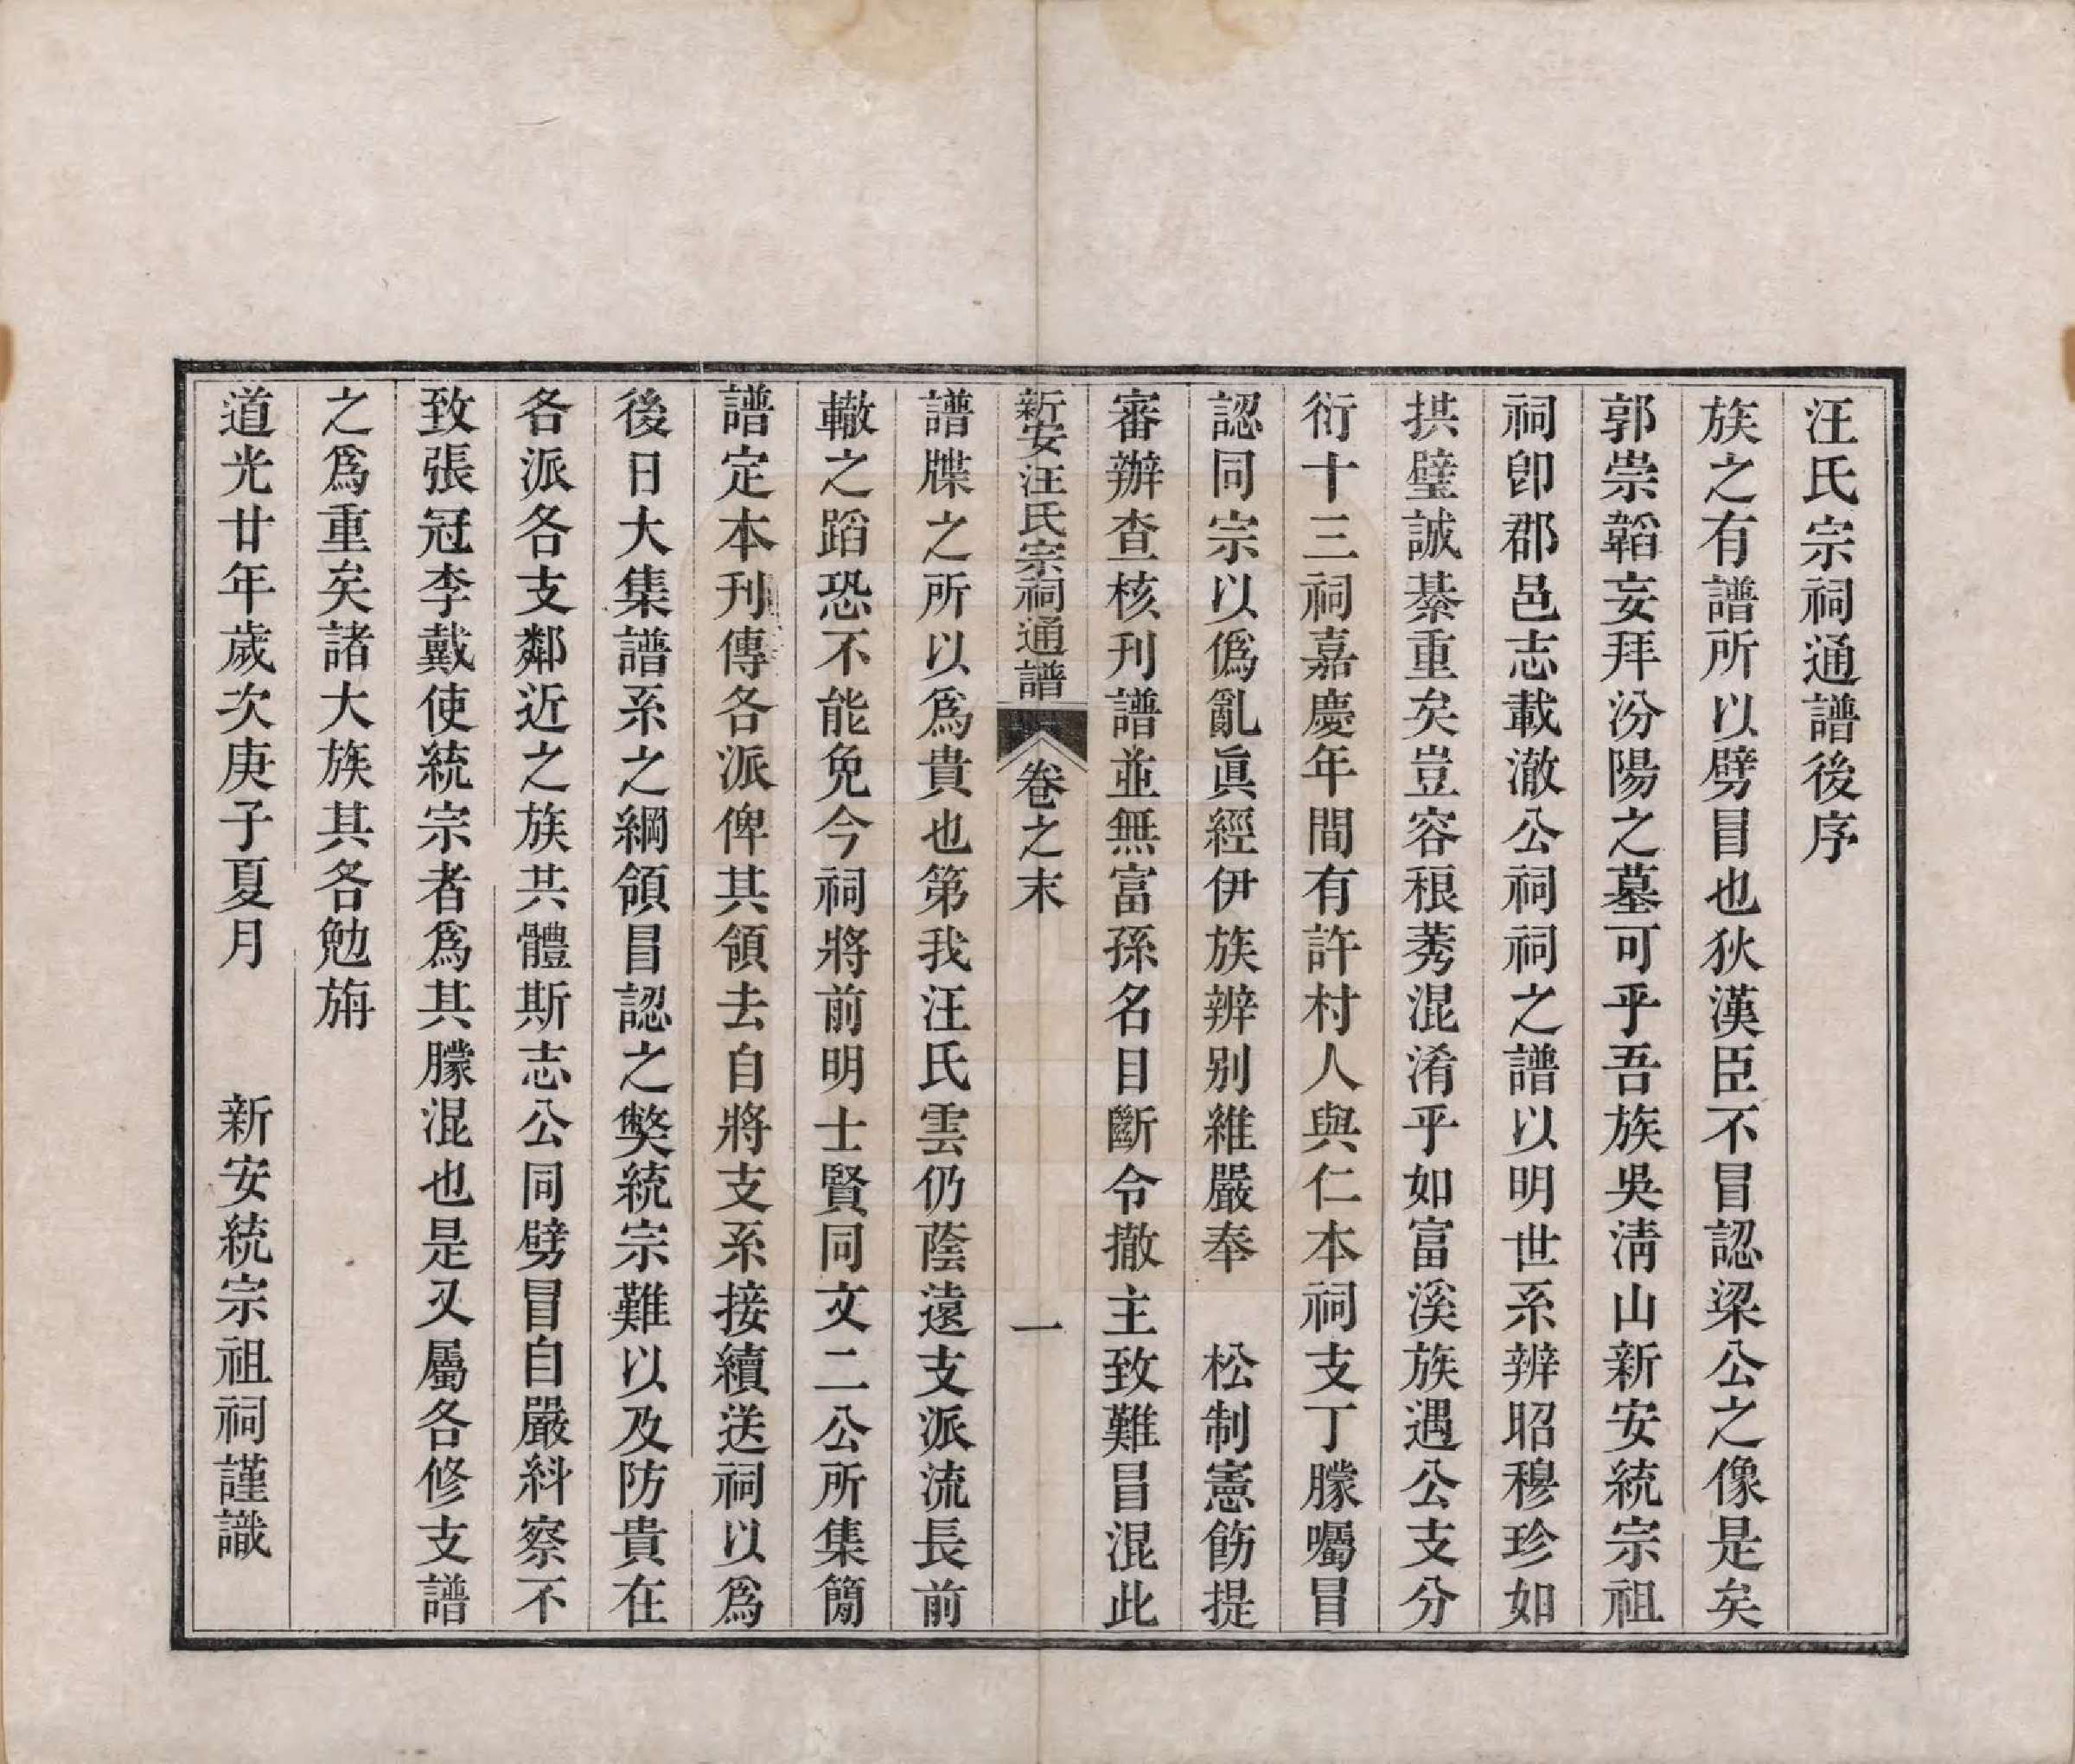 汪氏宗祠通譜後序
族之有譜所以劈冒也狄漢臣不冒認梁公之像是矣
郭崇韜妄拜汾陽之墓可乎吾族吳清山新安統宗祖
祠卽郡邑志載澈公祠祠之譜以明世系辨昭穆珍如
拱璧誠綦重矣豈容稂莠混淆乎如富溪族遇公支分
衍十三祠嘉慶年間有許村人與仁本祠支丁朦囑冒
認同宗以僞亂眞經伊族辨别維嚴奉　松制憲飭提
審辦查核刊譜並無富孫名目斷令撤主致難冒混此
新安汪氏宗祠通譜　卷之末　一
譜牒之所以爲貴也第我汪氏雲仍蔭遠支派流長前
轍之蹈恐不能免今祠將前明士賢同文二公所集簡
譜定本刊傳各派俾其領去自將支系接續送祠以爲
後日大集譜系之綱領冒認之獘統宗難以及防貴在
各派各支鄰近之族共體斯志公同劈冒自嚴糾察不
致張冠李戴使統宗者爲其朦混也是又屬各修支譜
之爲重矣諸大族其各勉旃
道光廿年歲次庚子夏月　新安統宗祖祠謹識